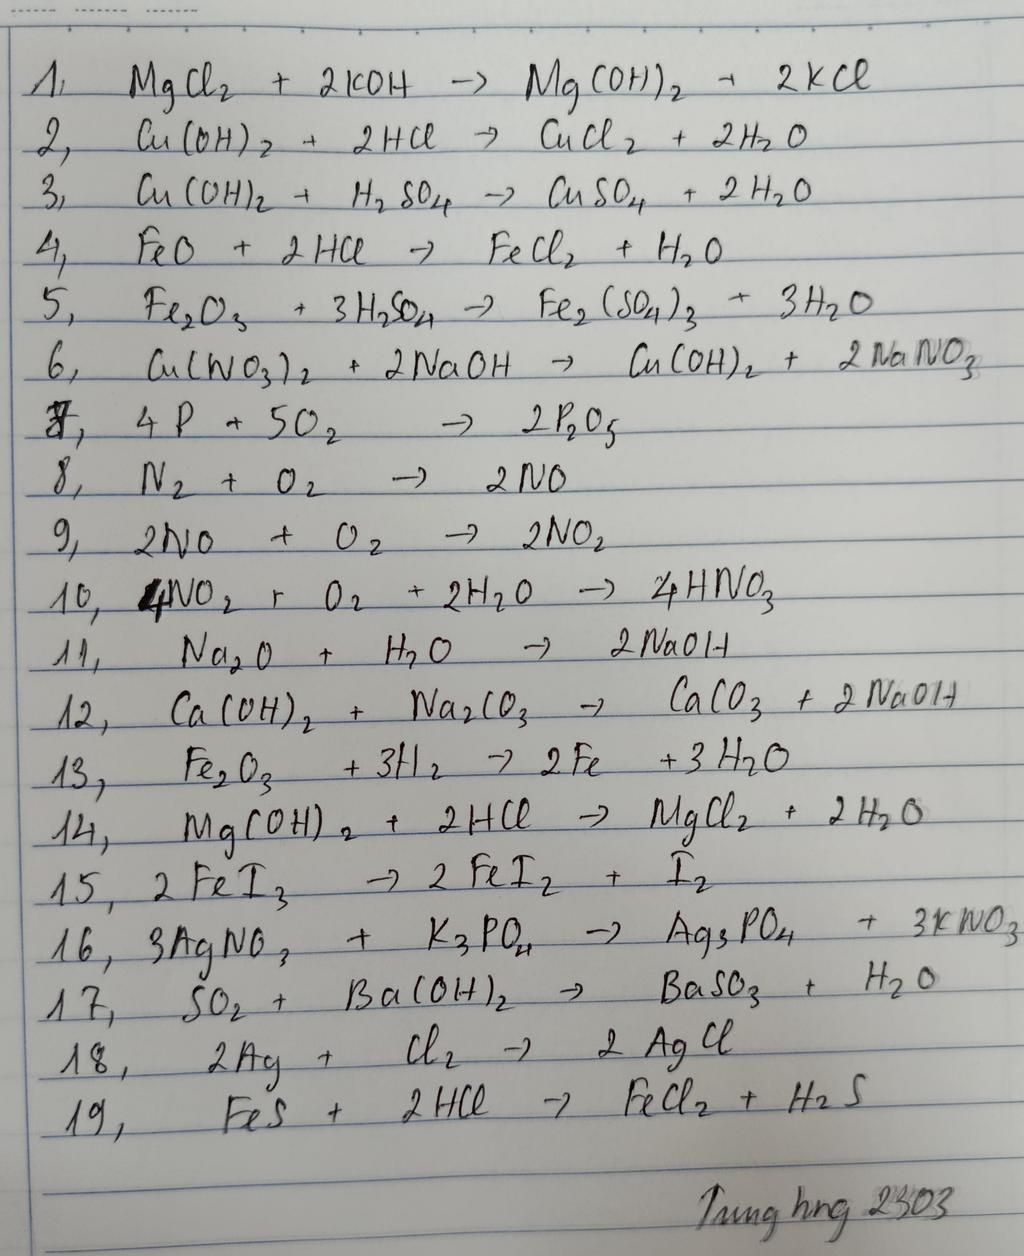 1, MgCl₂ + 2KOH → Mg(OH)₂ + 2KCl
2, Cu(OH)₂ + 2HCl → CuCl₂ + 2H₂O
3, Cu(OH)₂ + H₂SO₄ → CuSO₄ + 2H₂O
4, FeO + 2HCl → FeCl₂ + H₂O
5, Fe₂O₃ + 3H₂SO₄ → Fe₂(SO₄)₃ + 3H₂O
6, Cu(NO₃)₂ + 2NaOH → Cu(OH)₂ + 2NaNO₃
7, 4P + 5O₂ → 2P₂O₅
8, N₂ + O₂ → 2NO
9, 2NO + O₂ → 2NO₂
10, 4NO₂ + O₂ + 2H₂O → 4HNO₃
11, Na₂O + H₂O → 2NaOH
12, Ca(OH)₂ + Na₂CO₃ → CaCO₃ + 2NaOH
13, Fe₂O₃ + 3H₂ → 2Fe + 3H₂O
14, Mg(OH)₂ + 2HCl → MgCl₂ + 2H₂O
15, 2FeI₃ → 2FeI₂ + I₂
16, 3AgNO₃ + K₃PO₄ → Ag₃PO₄ + 3KNO₃
17, SO₂ + Ba(OH)₂ → BaSO₃ + H₂O
18, 2Ag + Cl₂ → 2AgCl
19, FeS + 2HCl → FeCl₂ + H₂S
Tung hng 2303